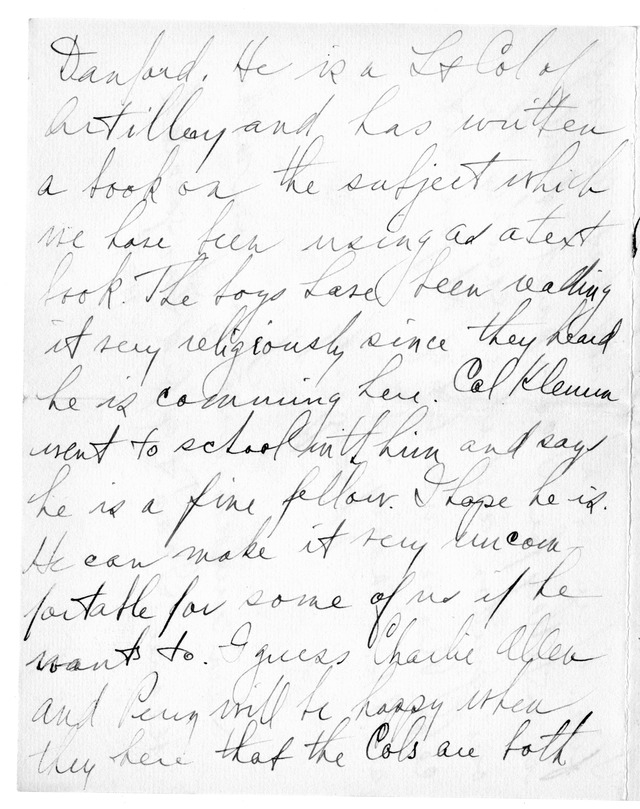 Danford. He is a Lt Col of
Artillery and has written
a book on the subject which
we have been using as a text
book. The boys have been reading
it very religiously since they heard
he is comming here. Col Klemm
went to school with him and says
he is a fine fellow. I hope he is.
He can make it very uncom-
fortable for some of us if he
wants to. I guess Charlie Allen
and Perry will be happy when
they here that the Cols are both